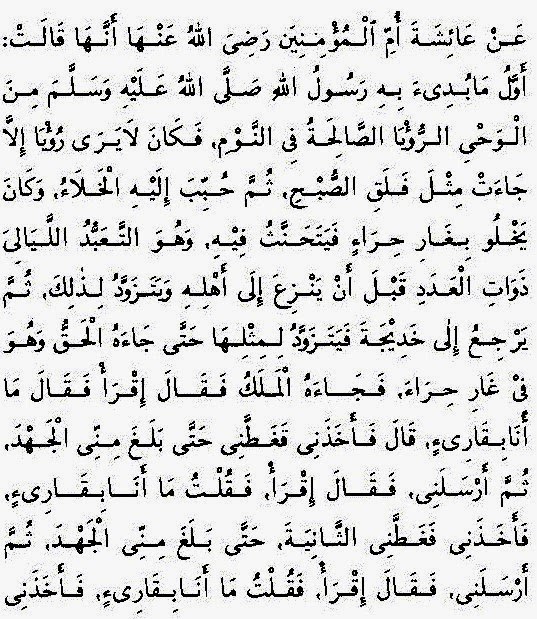 عَنْ عَائِشَةَ أُمِّ الْمُؤْمِنِيَن رَضِىَ اللهُ عَنْهَا أَنَّهَا قَالَتْ:
أَوَّلُ مَابُدِىءَ بِهِ رَسُولُ اللهِ صَلَّى اللهُ عَلَيْهِ وَسَلَّمَ مِنَ
الْوَحْيِ الرُّؤْيَا الصَّالِحَةُ فِى النَّوْمِ, فَكَانَ لَايَرَى رُؤْيَا إِلَّا
جَاءَتْ مِثْلَ فَلَقِ الصُّبْحِ, ثُمَّ حُبِّبَ إِلَيْهِ الْخَلَاءُ, وَكَانَ
يَخْلُو بِغَارِ حِرَاءٍ فَيَتَحَنَّثُ فِيْهِ, وَهُوَ التَّعَبُّدُ اللَّيَالِىَ
ذَوَاتِ الْعَدَدِ قَبْلَ أَنْ يَنْزِعَ إِلَى أَهْلِهِ وَيَتَزَوَّدُ لِذٰلِكَ, ثُمَّ
يَرْجِعُ إِلٰى خَدِيْجَةَ فَيَتَزَوَّدُ لِمِثْلِهَا حَتَّى جَاءَهُ الْحَقُّ وَهُوَ
فِىْ غَارِ حِرَاءَ, فَجَاءَهُ الْمَلَكُ فَقَالَ إِقْرَأْ فَقَالَ مَا
أَنَابِقَارِىءٍ, قَالَ فَأَخَذَنِى فَغَطَّنِى حَتَّى بَلَغَ مِنِّى الْجَهْدَ,
ثُمَّ أَرْسَلَنِى, فَقَالَ إِقْرَأْ, فَقُلْتُ مَا أَنَابِقَارِىءٍ,
فَأَخَذَنِى فَغَطَّنِى الثَّانِيَةَ, حَتَّى بَلَغَ مِنِّى الْجَهْدَ, ثُمَّ
أَرْسَلَنِى, فَقَالَ إِقْرَأْ, فَقُلْتُ مَا أَنَابِقَارِىءٍ, فَأَخَذَنِى